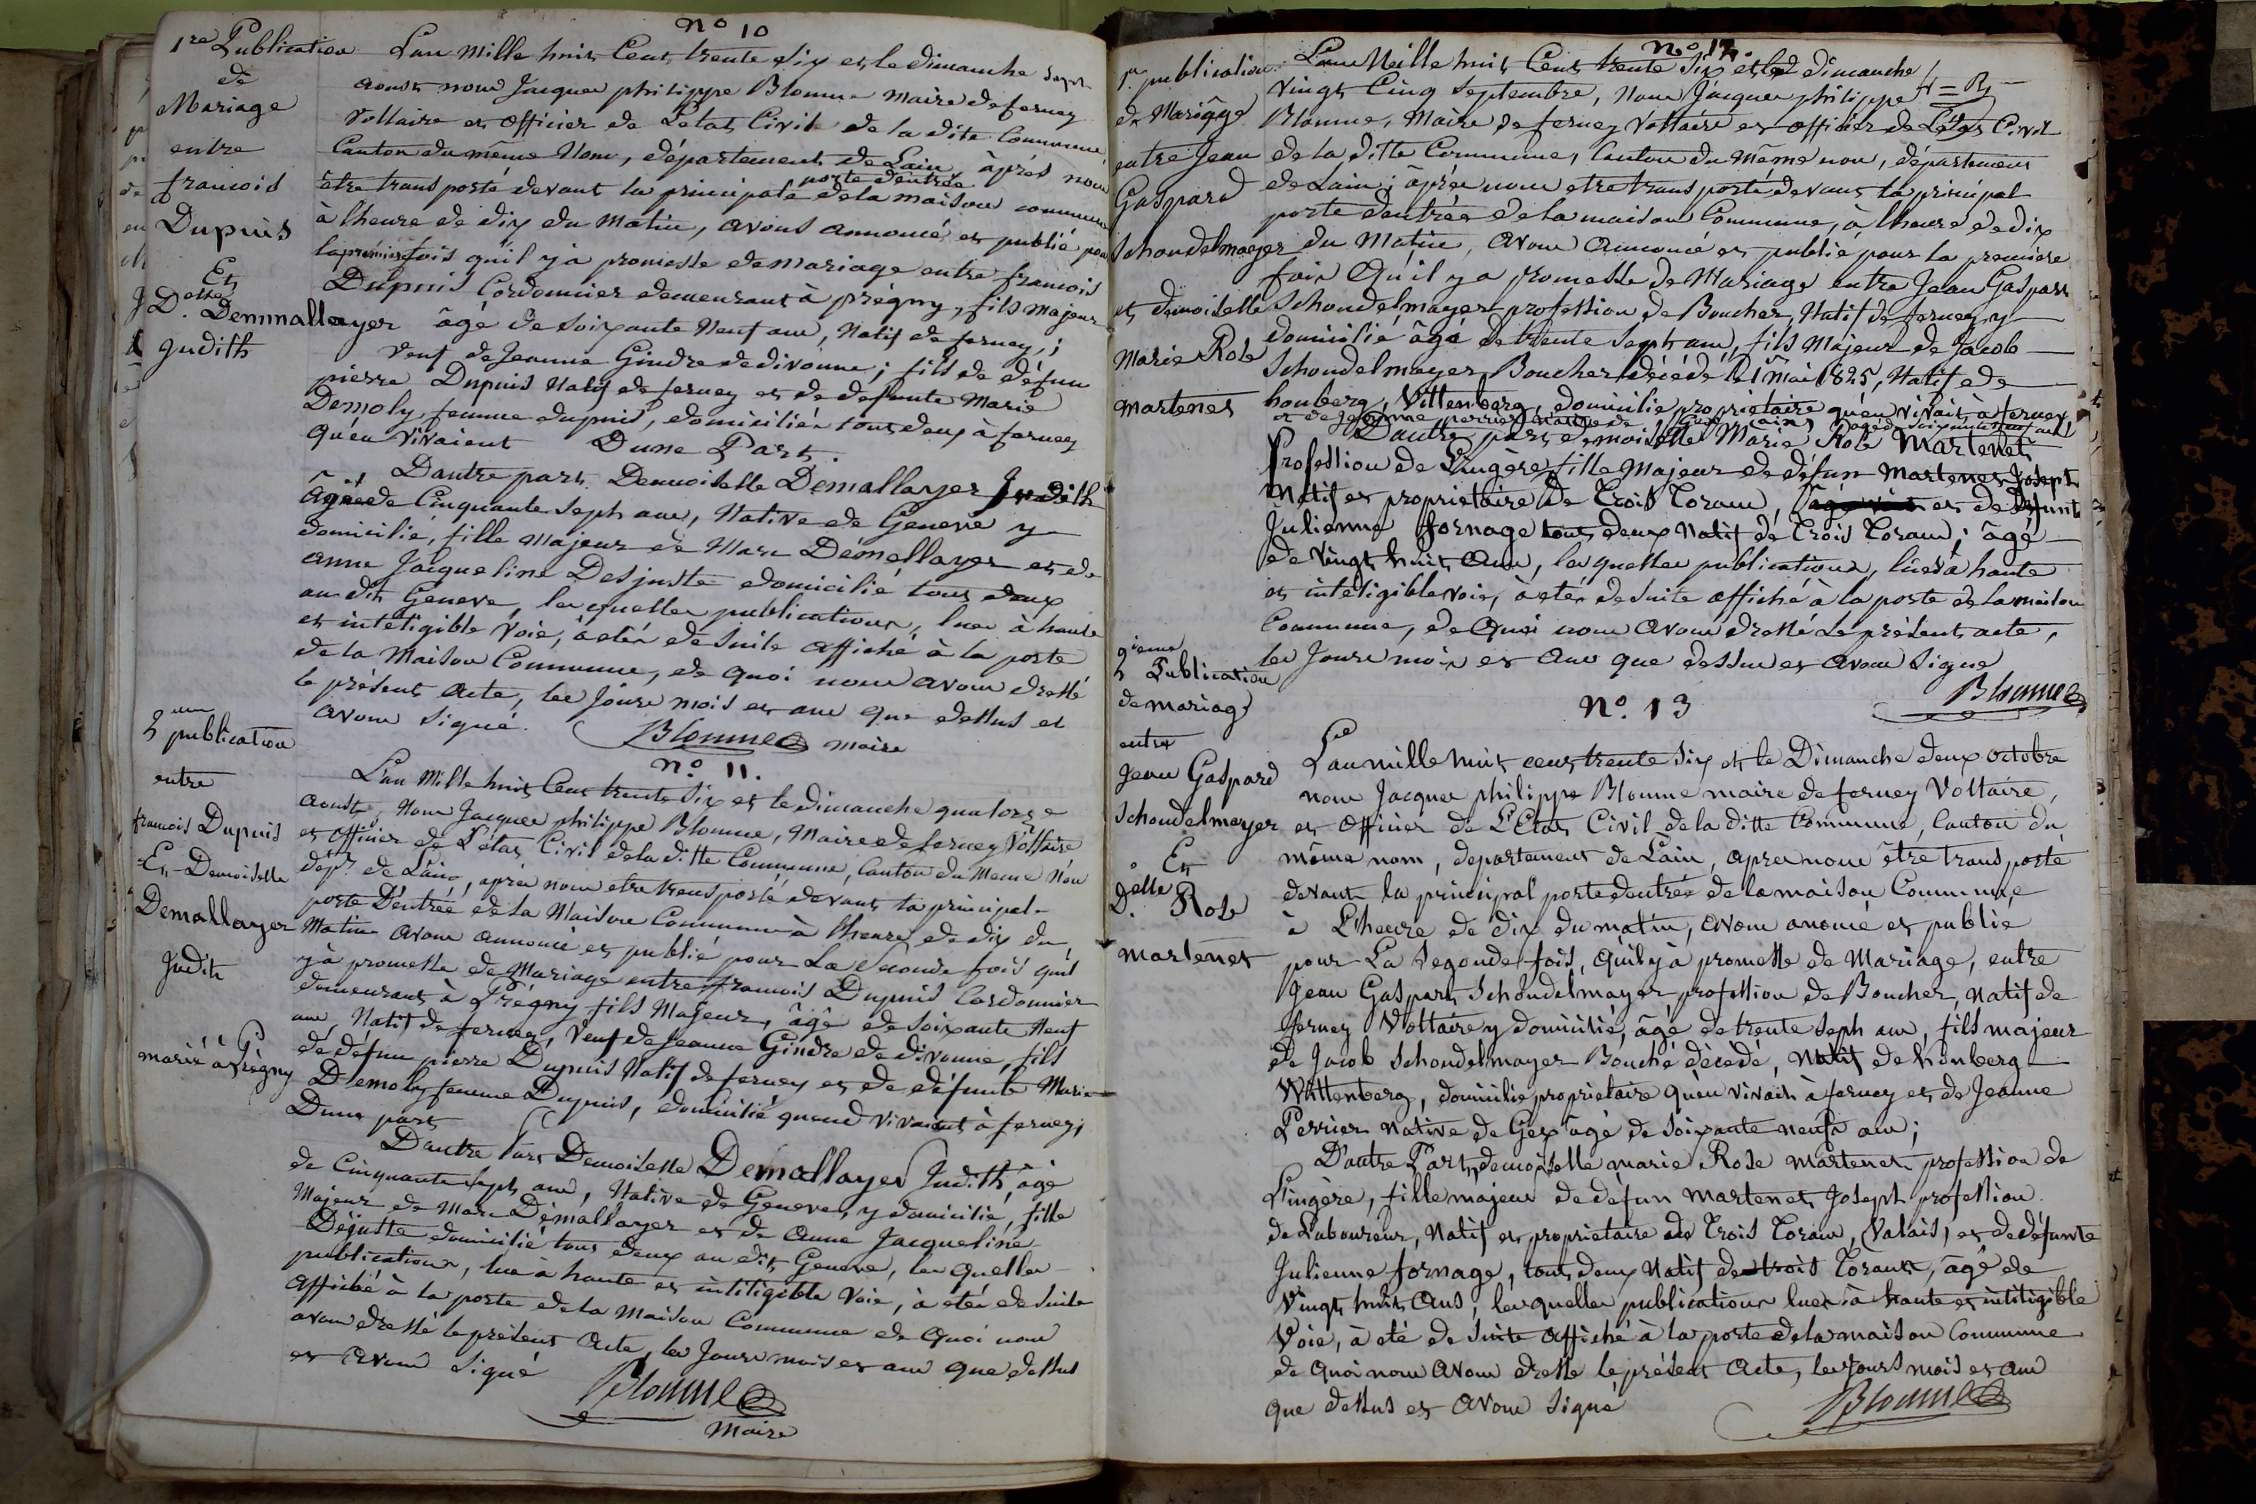 N° 10
1re Publication
de
Mariage
entre
françois
Dupuis
Et
Delle Demmallayer
Judith
L'an mille huit Cent trente Six et le dimanche Sept
aoust nous Jacques philippe Blomme maire de ferney
Voltaire et officier de L'etat Civil de la dite Commune
Canton du même Nom, département de Lain, àprés nous
être transporté devant la principale porte dentrée de la maison commune
à lheure de dix du Matin, avons annoncé et publié pour
la premier fois qu'il y à promesse de mariage entre francois
Dupuis Cordonnier demeurant à prégny, fils majeur
âgé de Soixante Neuf ans, Natif de ferney,;
Veuf de Jeanne Gindre de divonne; fils de défun
pierre Dupuis Natif de ferney et de defunte Marie
Demoly femme dupuis, domiciliés tout deux à ferney
qu'en vivaient Dune Part.
Dautre part. Demoiselle Demallayer Judith
âgée de Cinquante Sept ans, Native de Genevè y
domicilié, fille majeur de Marc Démallayer et de
anne Jacqueline Desjuste domicilié tous deux
au dit Geneve, lesquelles publications, lues à haute
et intéligible voie, à étés de Suite affiché à la porte
de la Maison Commune, de quoi nous avons dressé
le présent acte, les Jours mois et ans que dessus et
avons Signé. Blomme maire
2eme publication
entre
francois Dupuis
Et Demoiselle
Demallayer
Judith
marié à Prégny
N° 11.
L'an Mille huit Cent trente Six et le dimanche quatorze
aouste, Nous Jacques philippe Blomme, Maire de ferney Voltaire
et officier de L'état Civil de la ditte Commune, Canton du Meme Non
dépt de Lain, aprés nous etre transporté devant la principal
porte D'entrée de la Maison Commune à lheure de dix du
Matin avons annoncé et publié pour La Séconde fois quil
y à promesse de Mariage entre francois Dupuis Cordonnier
demeurant à Prégny fils Majeur, âgé de Soixante Neuf
ans, Natif de ferney, Veuf de Jeanne Gindre de divonne, fils
de defun pierre Dupuis Natif de ferney et de défunte Marie
Demoly femme Dupuis, domicilié quand vivaient à ferney,
Dune part
Dautre Part Demoiselle Demallayer Judith, âgé
de Cinquante Sept ans, Native de Geneve, y domicilié, fille
Majeur de Marc Démallayer et de Anne Jacqueline
Déjuste domicilié tous deux au dit Geneve, les quelles
publications, lue a haute et intitigible voie, à étés de Suite
affiché à la porte de la Maison Commune de Quoi nous
avons dressé le présent Acte, les Jours mois et ans que dessus
et avons Signé
Blomme
Maire
1re publication
de Mariage
entre Jean
Gaspard
Schondelmayer
et demoiselle
Marie Rose
Martenet
N° 12
L'an Mille huit Cent trente Six et le dimanche
vingt Cinq Septembre, Nous Jacques philippe
Blomme, Maire de ferney Voltaire et officier de L'état Civil
de la ditte Commune, Canton du Même non, département
de Lain; âprés nous etre transporté devant la principal
porte dentrée de la maison Commune, à lheure de dix
du Matin, avons annoncé et publié pour la premiére
fois Qu'il y a promesse de Mariage entre Jean Gaspart
Schondelmayer profession de Boucher, Natif de ferney y
domicilié âgé de trente Sept ans, fils Majeur de Jacob
Schondelmayer Boucher décédé le 1er Mai 1825, Natif de
honberg, Vittenberg, domicilié propriétaire qu'en vivait à ferney
et de Jeanne perrier Native de Gex (ain) agé de Soixante neuf ans
Dautre part demoiselle Marie Rose Martenet
Profession de Lingère fille Majeur de défun Martenet Joseph
Natif et propriétaire de Trois Torans, et de defunte
Julienne fornage tous deux Natif de Trois Torans; âgé
de Vingt huit Ans, les quelles publications, lues à haute
et intéligible voie, à étés de Suite affiché à la porte de la maison
Commune, de Quoi nous avons dressé Le présent acte,
les Jours mois et Ans que dessus et avons Signé
Blomme
2ieme Publication
de mariage
entre
Jean Gaspard
Schondelmeyer
Et
Delle Rose
Martenet
N° 13
L'an mille huit cent trente Six et le Dimanche deux octobre
nous Jacques philippe Blomme maire de ferney Voltaire,
et officier de L'Etat Civil de la ditte Commune, Canton du
même nom, departement de Lain, apres nous être transporté
devant la principal porte dentrée de la maison Commune,
à L'heure de dix du matin, avons anoncé et publié
pour La Segonde fois, Qu'il y à promesse de Mariage, entre
Jean Gaspart Schondelmayer profession de Boucher, Natif de
ferney Voltaire y domicilié, âgé de trente Seph ans, fils majeur
de Jacob Schondelmayer Bouché décédé, Natif de honberg
Wittenberg, domicilié propriétaire Qu'en Vivait à ferney et de Jeanne
Perrier Native de Gex âgé de Soixante neufs ans;
D'autre Part, demoiselle marie Rose Martenet profession de
Lingère, fille majeur de défun Martenet Joseph profession
de Laboureur, Natif et propriétaire de Trois Torans, (Valais) et de défunte
Julienne fornage, tous deux Natif de trois Torans, âgé de
Vingt huit Ans, lesquelles publications lues à haute et intitigible
Voie, à été de Suite affiché à la porte de la maison Commune
de Quoi nous avons dressé le présent Acte, les Jours mois et ans
que dessus et avons Signé
Blomme